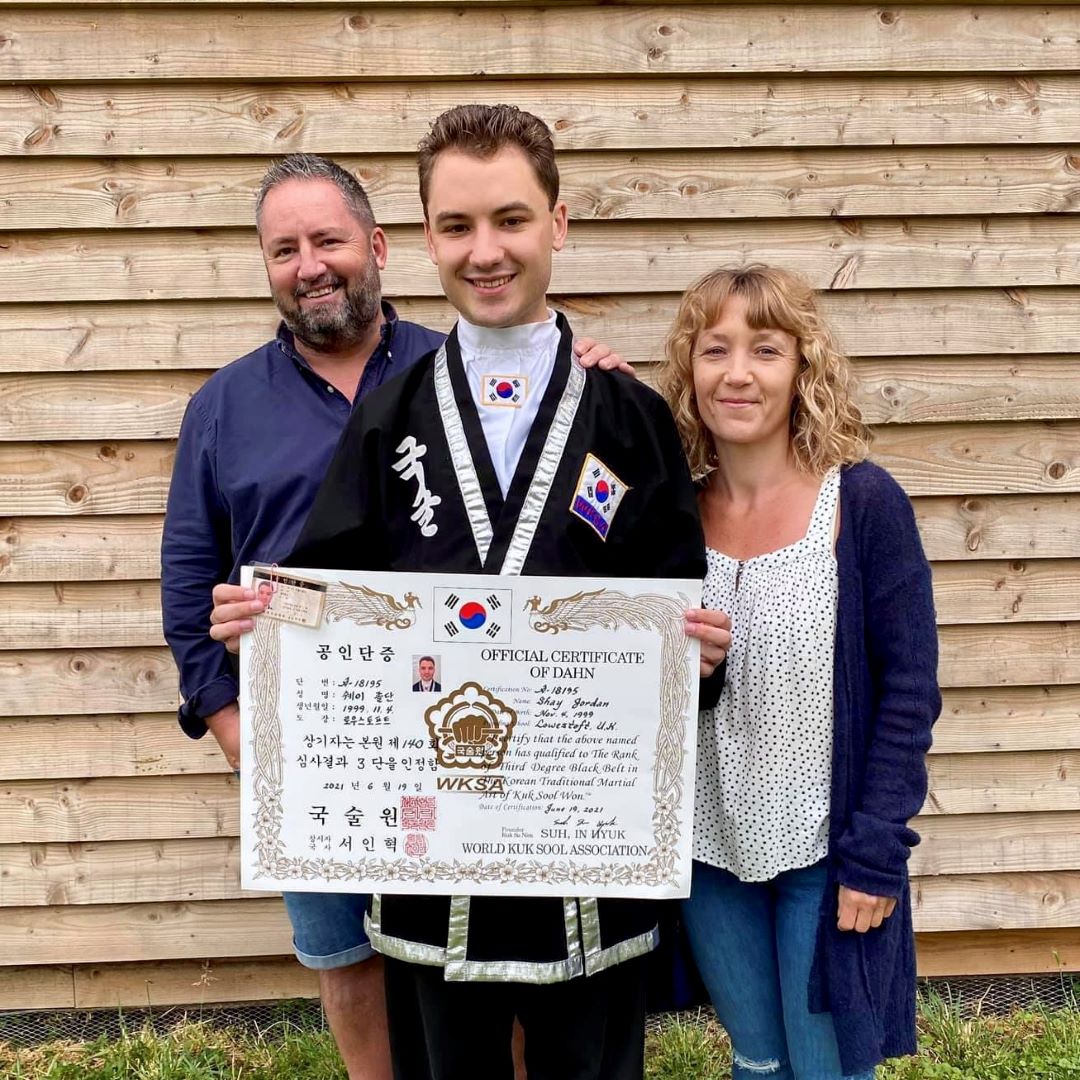 국술
WKSA
공인단증
단 번: 유-18195
성 명: 쉐이 죨단
생년월일: 1999. 11. 4.
도 장: 로우스토프트
상기자는 본원 제 140 회
심사결과 3 단을 인정함
2021 년 6 월 19 일
국 술 원
국 사 서 인 혁
국술원
WKSA
OFFICIAL CERTIFICATE
OF DAHN
Certification No: 18195
Name: Shay Jordan
Nov. 4, 1999
Lowestoft, U.K.
certify that the above named
has qualified to The Rank
Third Degree Black Belt in
Korean Traditional Martial
Art of Kuk Sool Won.™
Date of Certification: June 19, 2021
Founder
Kuk Sa Nim SUH, IN HYUK
WORLD KUK SOOL ASSOCIATION